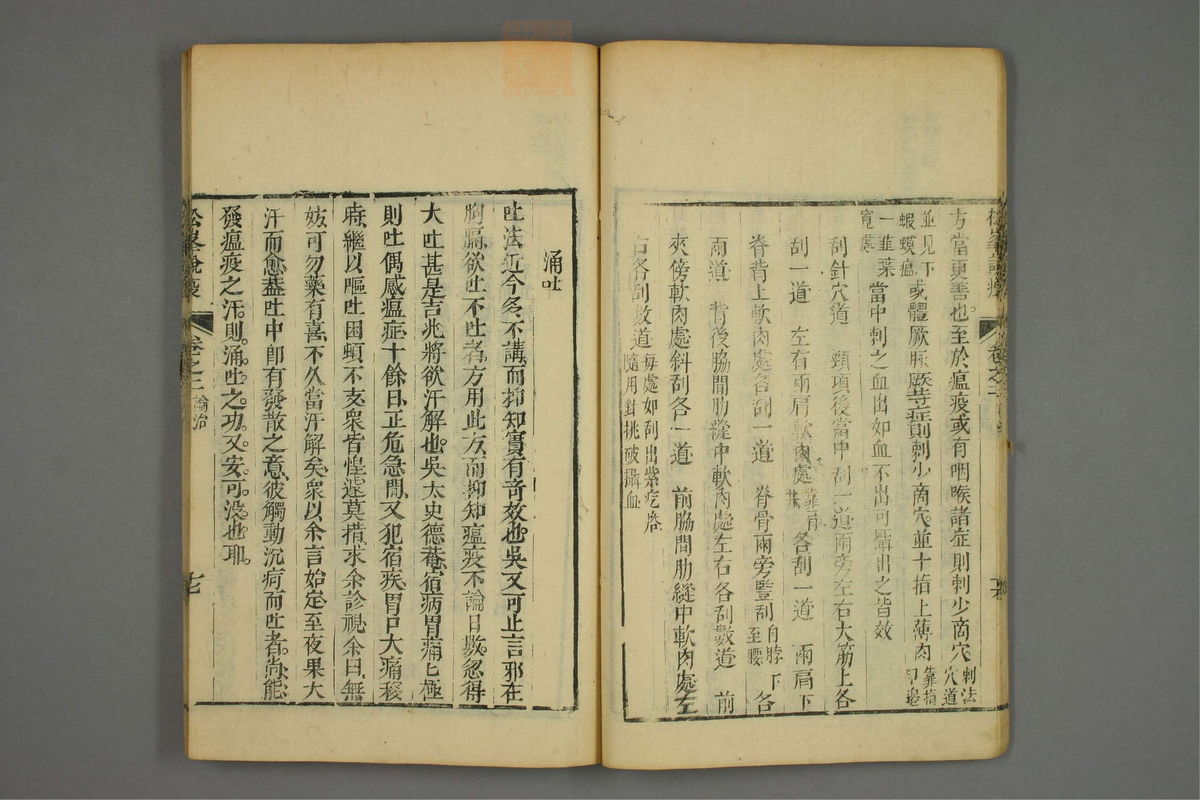 方當更善也至於瘟疫或有咽喉諸症則刺少商穴刺法穴道
並見下蝦蟆瘟或體厥脈厥等症則刺少商穴並十指上薄肉靠指甲邊
一韭葉寬處當中刺之血出如血不出可攝出之皆效
刮針穴道 頸項後當中刮一道兩旁左右大筋上各
刮一道 左右兩肩軟肉處靠肩各刮一道 兩肩下
脊背上軟肉處各刮一道 脊骨兩旁豎刮自脖下至腰各
兩道 背後脇間肋縫中軟肉處左右各刮數道 前
夾傍軟肉處斜刮各一道 前脇間肋縫中軟肉處左
右各刮數道每處如刮出紫疙瘩隨用針挑破攝血
松峯說疫 卷之二 論治 七
涌吐
吐法近今多不講而抑知實有奇效也吳又可止言邪在
胸膈欲吐不吐者方用此方而抑知瘟疫不論日數忽得
大吐甚是吉兆將欲汗解也吳太史德菴宿病胃痛匕極
則吐偶感瘟症十餘日正危急間又犯宿疾胃口大痛移
時繼以嘔吐困頓不支衆皆惶遽莫措求余診視余曰無
妨可勿藥有喜不久當汗解矣衆以余言始定至夜果大
汗而愈葢吐中卽有發散之意彼觸動沉疴而吐者尚能
發瘟疫之汗則涌吐之功又安可沒也耶